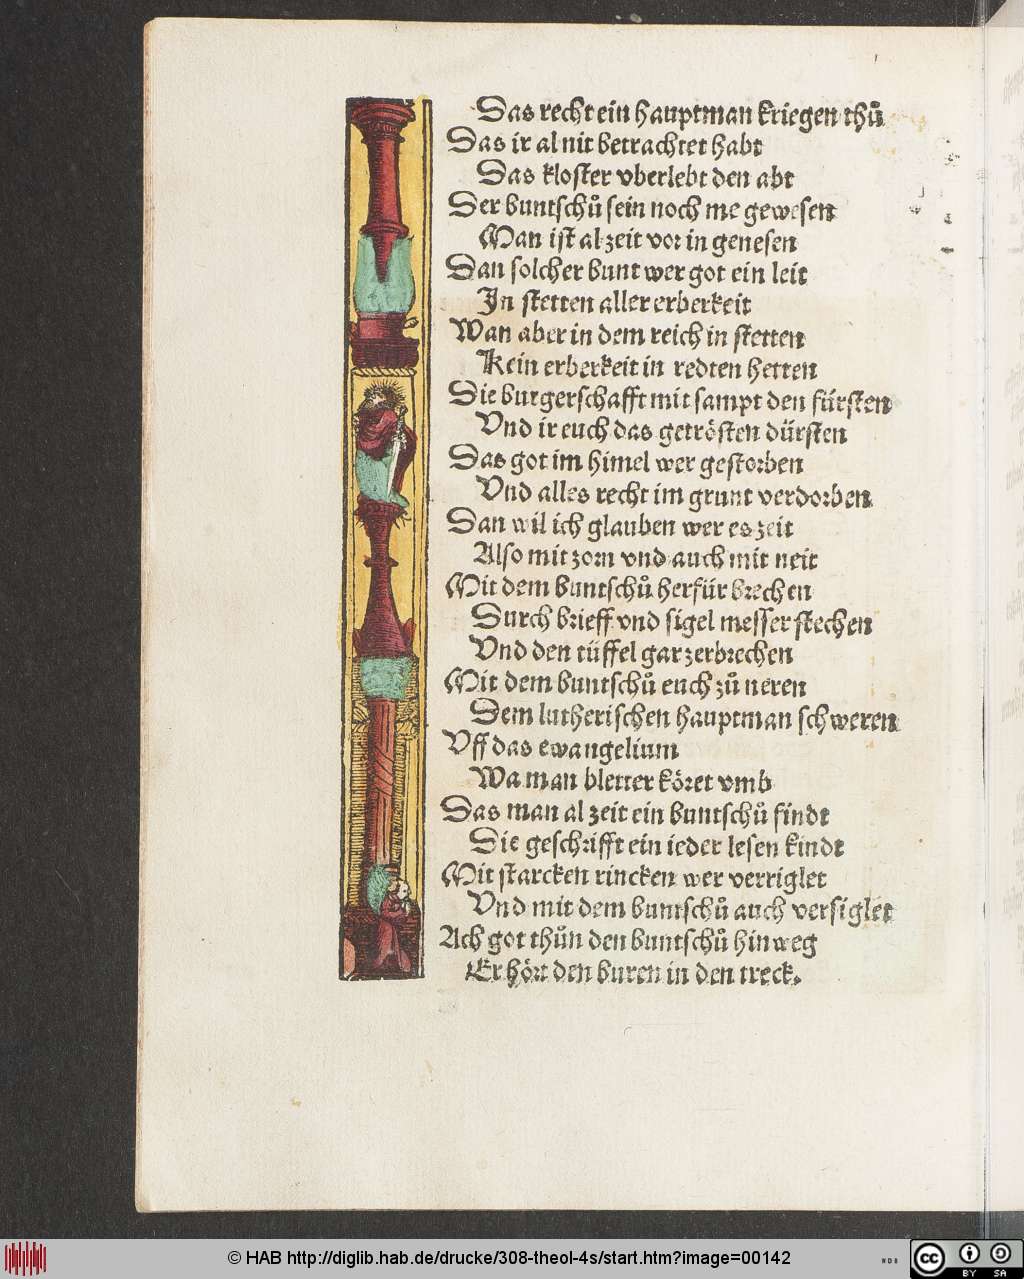 Das recht ein hauptman kriegen thů
Das ir al nit betrachtet habt
Das kloſter vberlebt den abt
Der buntſchů ſein noch me geweſen
Man iſt al zeit vor in geneſen
Dan ſolcher bunt wer got ein leit
In ſtetten aller erberkeit
Wan aber in dem reich in ſtetten
Kein erberkeit in redten hetten
Die burgerſchafft mit ſampt den fürſten
Vnd ir euch das getröſten dürſten
Das got im himel wer geſtorben
Vnd alles recht im grunt verdorben
Dan wil ich glauben wer es zeit
Alſo mit zorn vnd auch mit neit
Mit dem buntſchů herfür brechen
Durch brieff vnd ſigel meſſer ſtechen
Vnd den tüffel gar zerbrechen
Mit dem buntſchů euch zů neren
Dem lutheriſchen hauptman ſchweren
Vff das ewangelium
Wa man bletter köret vmb
Das man al zeit ein buntſchů findt
Die geſchrifft ein ieder leſen kindt
Mit ſtarcken rincken wer verriglet
Vnd mit dem buntſchů auch verſiglet
Ach got thůn den buntſchů hinweg
Er hört den buren in den treck.
© HAB http://diglib.hab.de/drucke/308-theol-4s/start.htm?image=00142
WDB
cc BY SA